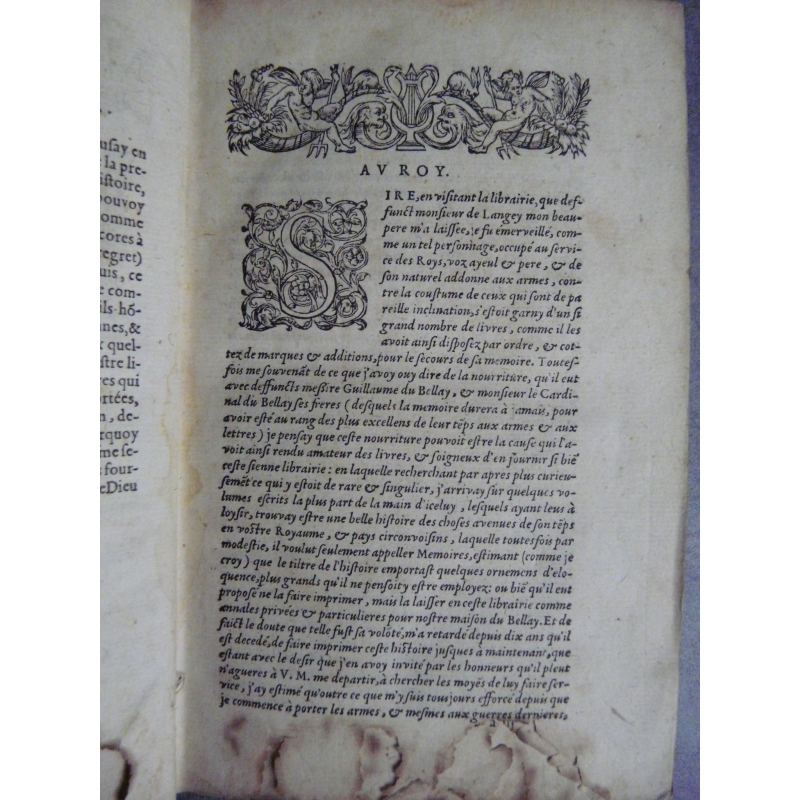 usay en
la pre-
istoire,
pouvoy
omme
cores à
egret)
uis, ce
e com-
ils hō-
nes, &
quel-
stre li-
res qui
rtées,
n, de-
rquoy
me se-
four-
eDieu
AV ROY.
SIRE, en visitant la librairie, que def-
funct monsieur de Langey mon beau-
pere m'a laissee, je fu émerveillé, com-
me un tel personnage, occupé au servi-
ce des Roys, voz ayeul & pere, & de
son naturel addonne aux armes, con-
tre la coustume de ceux qui sont de pa
reille inclination, s'estoit garny d'un si
grand nombre de livres, comme il les
avoit ainsi disposez par ordre, & cot-
tez de marques & additions, pour le secours de sa memoire. Toutes-
fois me souvenāt de ce que j'avoy ouy dire de la nourriture, qu'il eut
avec deffuncts messire Guillaume du Bellay, & monsieur le Cardi-
nal du Bellay ses freres (desquels la memoire durera à jamais, pour
avoir esté au rang des plus excellens de leur tēps aux armes & aux
lettres) je pensay que ceste nourriture pouvoit estre la cause qui l'a-
voit ainsi rendu amateur des livres, & soigneux d'en fournir si biē
ceste sienne librairie : en laquelle recherchant par apres plus curieu-
semēt ce qui y estoit de rare & singulier, j'arrivay sur quelques vo-
lumes escrits la plus part de la main d'iceluy, lesquels ayant leus à
loysir, trouvay estre une belle histoire des choses avenues de son tēps
en vostre Royaume, & pays circonvoisins, laquelle toutesfois par
modestie, il voulut seulement appeller Memoires, estimant (comme je
croy) que le tiltre de l'histoire emportast quelques ornemens d'elo-
quence, plus grands qu'il ne pensoit y estre employez: ou biē qu'il eut
proposé ne la faire imprimer, mais la laisser en ceste librairie comme
annales privées & particulieres pour nostre maison du Bellay. Et de
faict le doute que telle fust sa volōté, m'a retardé depuis dix ans qu'il
est decedé, de faire imprimer ceste histoire jusques à maintenant, que
estant avec le desir que j'en avoy invité par les honneurs qu'il pleut
n'agueres à V. M. me departir, à chercher les moyēs de luy faire ser-
vice, j'ay estimé qu'outre ce que m'y suis tousjours efforcé depuis que
je commence à porter les armes, & mesmes aux guerres dernieres,